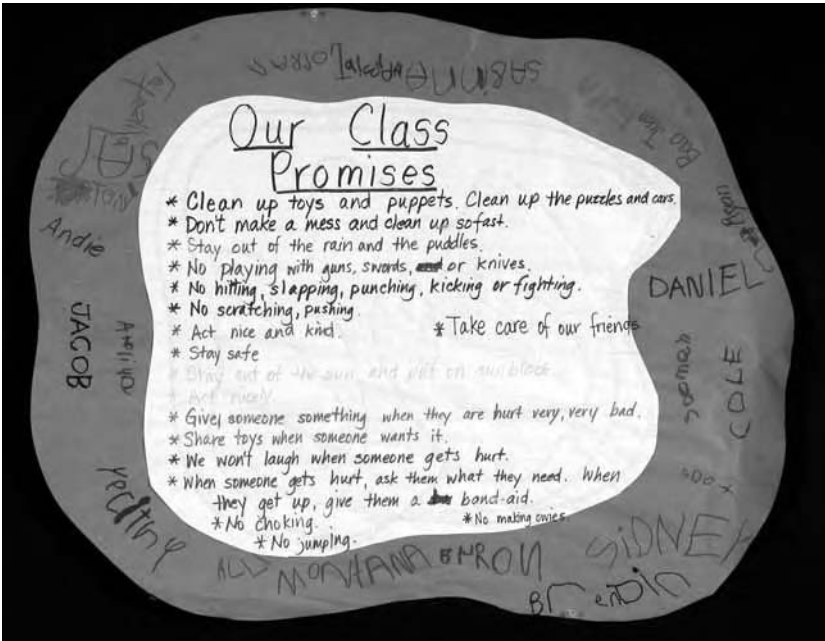 Our Class
Promises
* Clean up toys and puppets. Clean up the puzzles and cars.
* Don't make a mess and clean up so fast.
* Stay out of the rain and the puddles.
* No playing with guns, swords, or knives.
* No hitting, slapping, punching, kicking or fighting.
* No scratching, pushing.
* Act nice and kind. * Take care of our friends
* Stay safe
* Stay out of the sun, and put on sunblock.
* Act nicely
* Give someone something when they are hurt very, very bad.
* Share toys when someone wants it.
* We won't laugh when someone gets hurt.
* When someone gets hurt, ask them what they need. When
they get up, give them a band-aid.
* No choking. * No making owies.
* No jumping.
SABINA
Andie
JACOB
DANIEL
COLE
SiDNEY
MONTANA
BrenDin